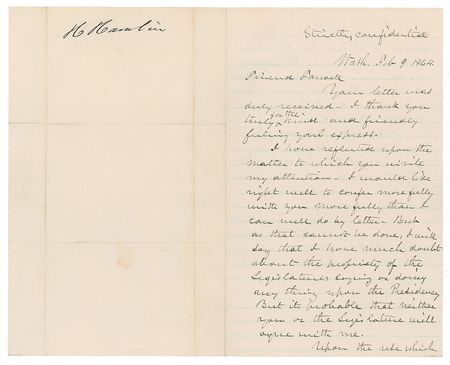 H Hamlin
Strictly confidential
Wash. Feb 9 1864
Friend
Your letter was
duly received - I thank you
truly for the kind and friendly
feeling you express -
I have reflected upon the
matter to which you invite
my attention - I would like
right well to confer more fully
with you more fully than I
can well do by letter - But
as that cannot be done, I will
say that I have much doubt
about the propriety of the
Legislatures saying or doing
any thing upon the Presidency
But its probable that neither
you or the Legislature will
agree with me.
Upon the
which